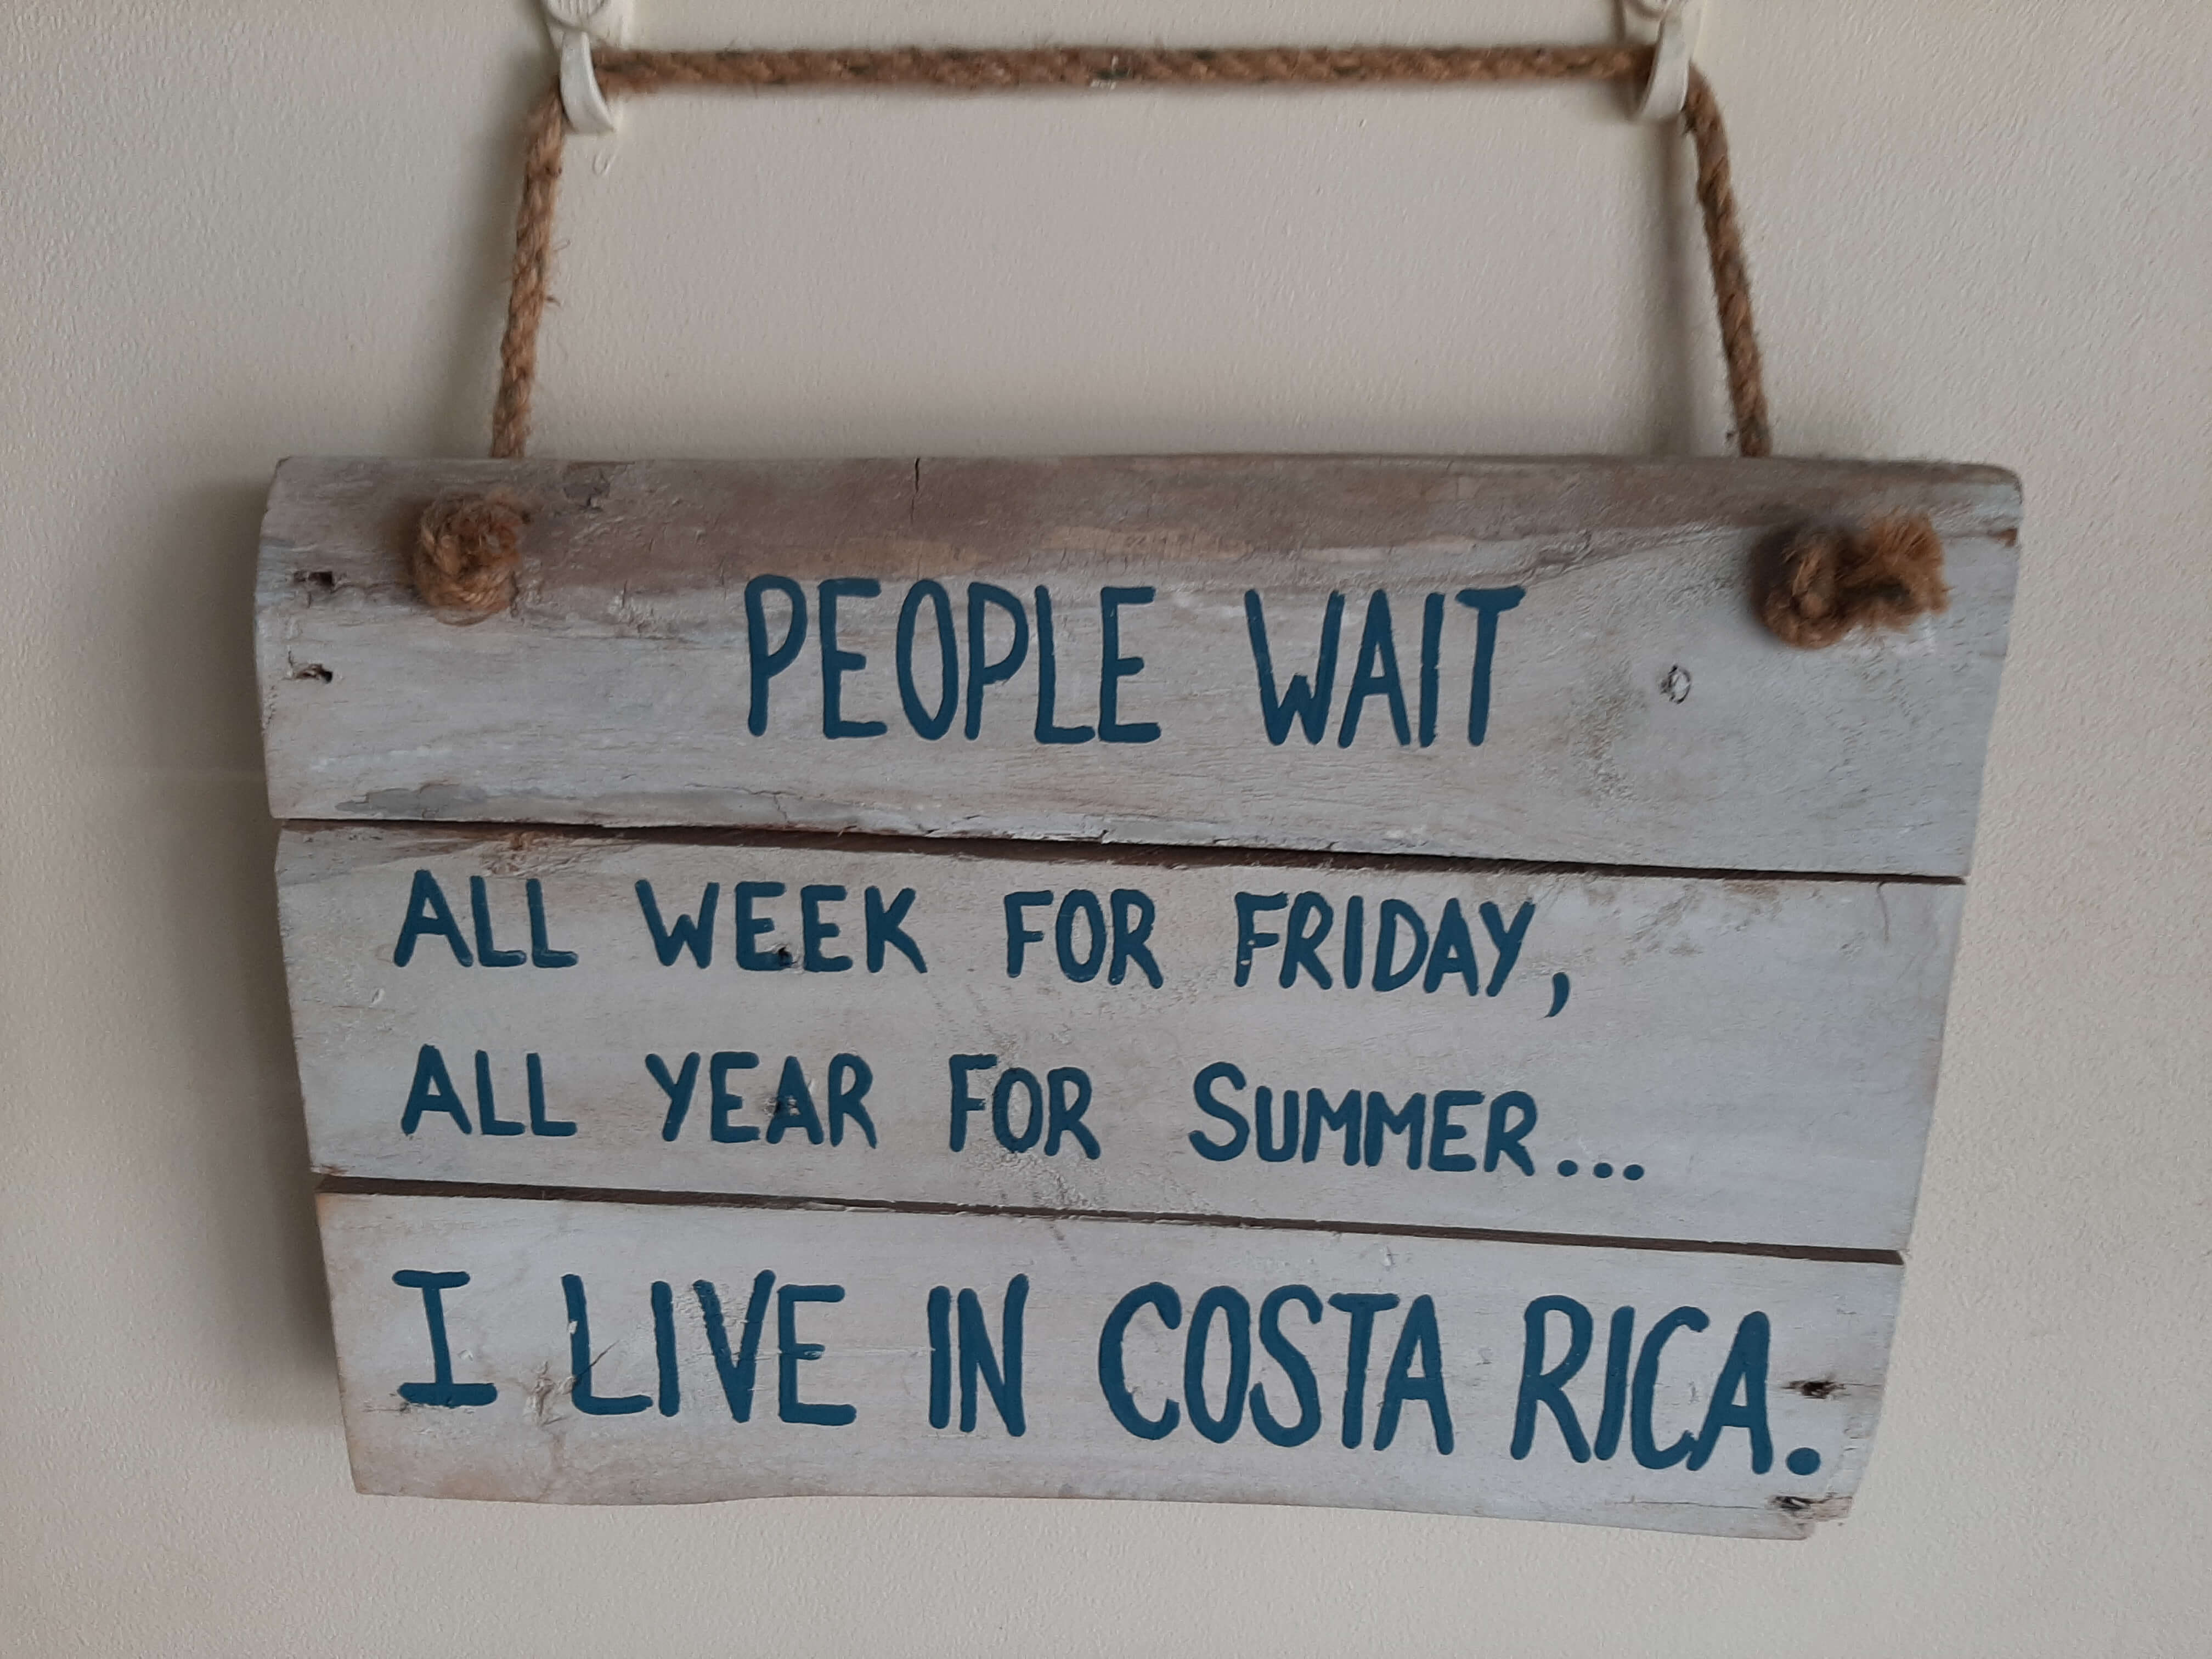 PEOPLE WAIT
ALL WEEK FOR FRIDAY,
ALL YEAR FOR SUMMER...
I LIVE IN COSTA RICA.